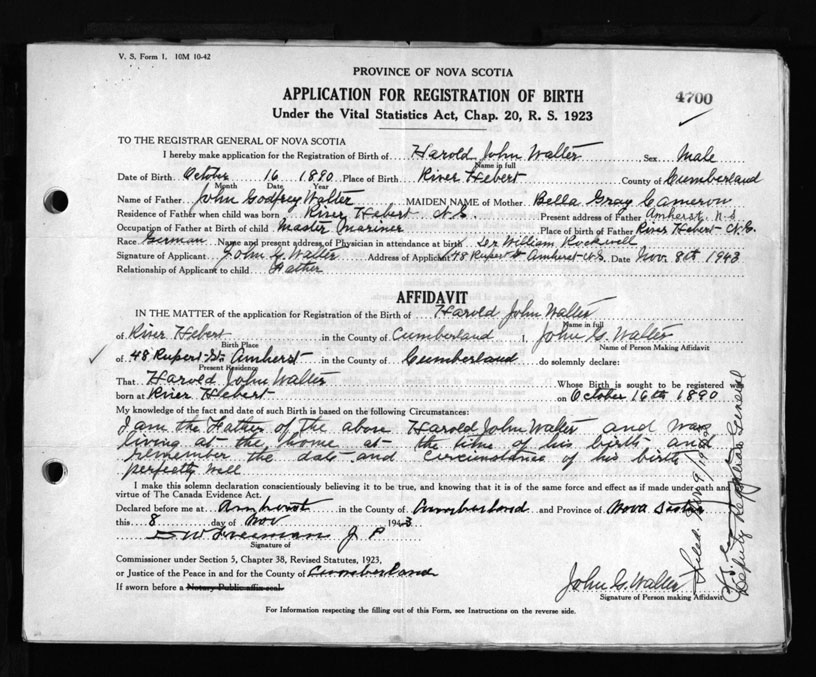 V. S. Form 1. 10M 10-42
PROVINCE OF NOVA SCOTIA
4700
APPLICATION FOR REGISTRATION OF BIRTH
Under the Vital Statistics Act, Chap. 20, R. S. 1923
TO THE REGISTRAR GENERAL OF NOVA SCOTIA
I hereby make application for the Registration of Birth of Harold John Walter Sex Male
Name in full
Date of Birth October 16 1890 Place of Birth River Hebert County of Cumberland
Month Date Year
Name of Father John Godfrey Walter MAIDEN NAME of Mother Bella Gray Cameron
Residence of Father when child was born River Hebert N.S. Present address of Father Amherst N.S
Occupation of Father at Birth of child Master Mariner Place of birth of Father River Hebert N.S.
Race German Name and present address of Physician in attendance at birth William Rockwell
Signature of Applicant John G. Walter Address of Applicant 48 Rupert St Amherst N.S. Date Nov. 8th 1943
Relationship of Applicant to child Father
AFFIDAVIT
IN THE MATTER of the application for Registration of the Birth of Harold John Walter
Name in full
of River Hebert in the County of Cumberland I, John G. Walter
Birth Place Name of Person Making Affidavit
of 48 Rupert St. Amherst in the County of Cumberland do solemnly declare:
Present Residence
That Harold John Walter Whose Birth is sought to be registered was
born at River Hebert on October 16th 1890
My knowledge of the fact and date of such Birth is based on the following Circumstances:
I am the Father of the above Harold John Walter and was
living at the home at the time of his birth and
remember the date and circumstance of his birth
perfectly well
I make this solemn declaration conscientiously believing it to be true, and knowing that it is of the same force and effect as if made under oath and
virtue of The Canada Evidence Act.
Declared before me at Amherst in the County of Cumberland and Province of Nova Scotia
this 8 day of Nov 1943
W Freeman J P
Signature of
Commissioner under Section 5, Chapter 38, Revised Statutes, 1923,
or Justice of the Peace in and for the County of Cumberland
If sworn before a Notary Public affix seal.
John G. Walter
Signature of Person making Affidavit
Filed Nov 9/1943
Deputy Registrar General
For Information respecting the filling out of this Form, see Instructions on the reverse side.